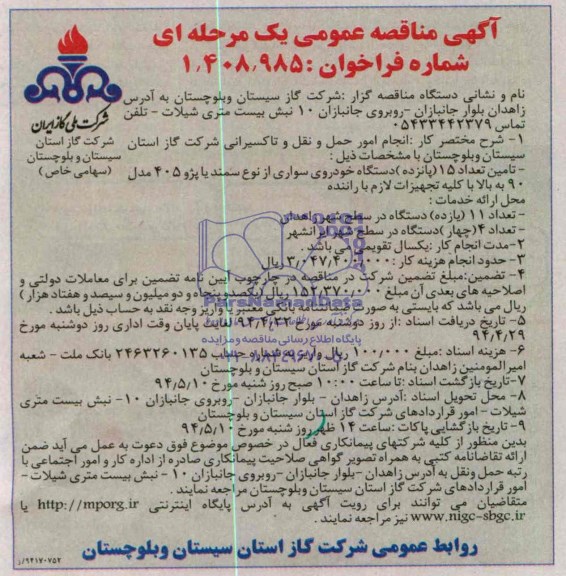 آگهی مناقصه عمومی یک مرحله ای
شماره فراخوان :۱٬۴۰۸٬۹۸۵
شرکت ملی گاز ایران
شرکت گاز استان
سیستان و بلوچستان
(سهامی خاص)
نام و نشانی دستگاه مناقصه گزار :شرکت گاز سیستان وبلوچستان به آدرس
زاهدان بلوار جانبازان -روبروی جانبازان ۱۰ نبش بیست متری شیلات - تلفن
تماس ۰۵۴۳۳۴۴۲۳۷۹
۱- شرح مختصر کار :انجام امور حمل و نقل و تاکسیرانی شرکت گاز استان
سیستان وبلوچستان با مشخصات ذیل :
- تامین تعداد ۱۵(پانزده )دستگاه خودروی سواری از نوع سمند یا پژو ۴۰۵ مدل
۹۰ به بالا با کلیه تجهیزات لازم با راننده
محل ارائه خدمات :
- تعداد ۱۱ (یازده) دستگاه در سطح شهر زاهدان
- تعداد ۴(چهار )دستگاه در سطح شهر ایرانشهر
۲-مدت انجام کار :یکسال تقویمی می باشد .
۳- حدود انجام هزینه کار :۳٬۰۴۷٬۴۰۰٬۰۰۰ ریال
۴- تضمین:مبلغ تضمین شرکت در مناقصه در چارچوب آیین نامه تضمین برای معاملات دولتی و
اصلاحیه های بعدی آن مبلغ ۱۵۲٬۳۷۰٬۰۰۰ ریال (یکصد و پنجاه و دو میلیون و سیصد و هفتاد هزار )
ریال می باشد که بایستی به صورت ضمانتنامه بانکی معتبر یا واریز وجه نقد به حساب ذیل باشد .
۵- تاریخ دریافت اسناد :از روز دوشنبه مورخ ۹۴/۴/۲۲ لغایت پایان وقت اداری روز دوشنبه مورخ
۹۴/۴/۲۹
۶- هزینه اسناد :مبلغ ۱۰۰/۰۰۰ ریال واریز به شماره حساب ۲۴۶۳۲۶۰۱۳۵ بانک ملت - شعبه
امیرالمومنین زاهدان بنام شرکت گاز استان سیستان و بلوچستان
۷-تاریخ بازگشت اسناد :تا ساعت ۱۰:۰۰ صبح روز شنبه مورخ ۹۴/۵/۱۰
۸- محل تحویل اسناد :آدرس زاهدان - بلوار جانبازان -روبروی جانبازان ۱۰- نبش بیست متری
شیلات - امور قراردادهای شرکت گاز استان سیستان و بلوچستان
۹- تاریخ بازگشایی پاکات :ساعت ۱۴ ظهر روز شنبه مورخ ۹۴/۵/۱۰
بدین منظور از کلیه شرکتهای پیمانکاری فعال در خصوص موضوع فوق دعوت به عمل می آید ضمن
ارائه تقاضانامه کتبی به همراه تصویر گواهی صلاحیت پیمانکاری صادره از اداره کار و امور اجتماعی با
رتبه حمل ونقل به آدرس زاهدان -بلوار جانبازان -روبروی جانبازان ۱۰ - نبش بیست متری شیلات -
امور قراردادهای شرکت گاز استان سیستان وبلوچستان مراجعه نمایند .
متقاضیان می توانند برای رویت آگهی به آدرس پایگاه اینترنتی http://mporg.ir یا
www.nigc-sbgc.ir نیز مراجعه نمایند .
روابط عمومی شرکت گاز استان سیستان وبلوچستان
ParsNamadData
پایگاه اطلاع رسانی مناقصه و مزایده